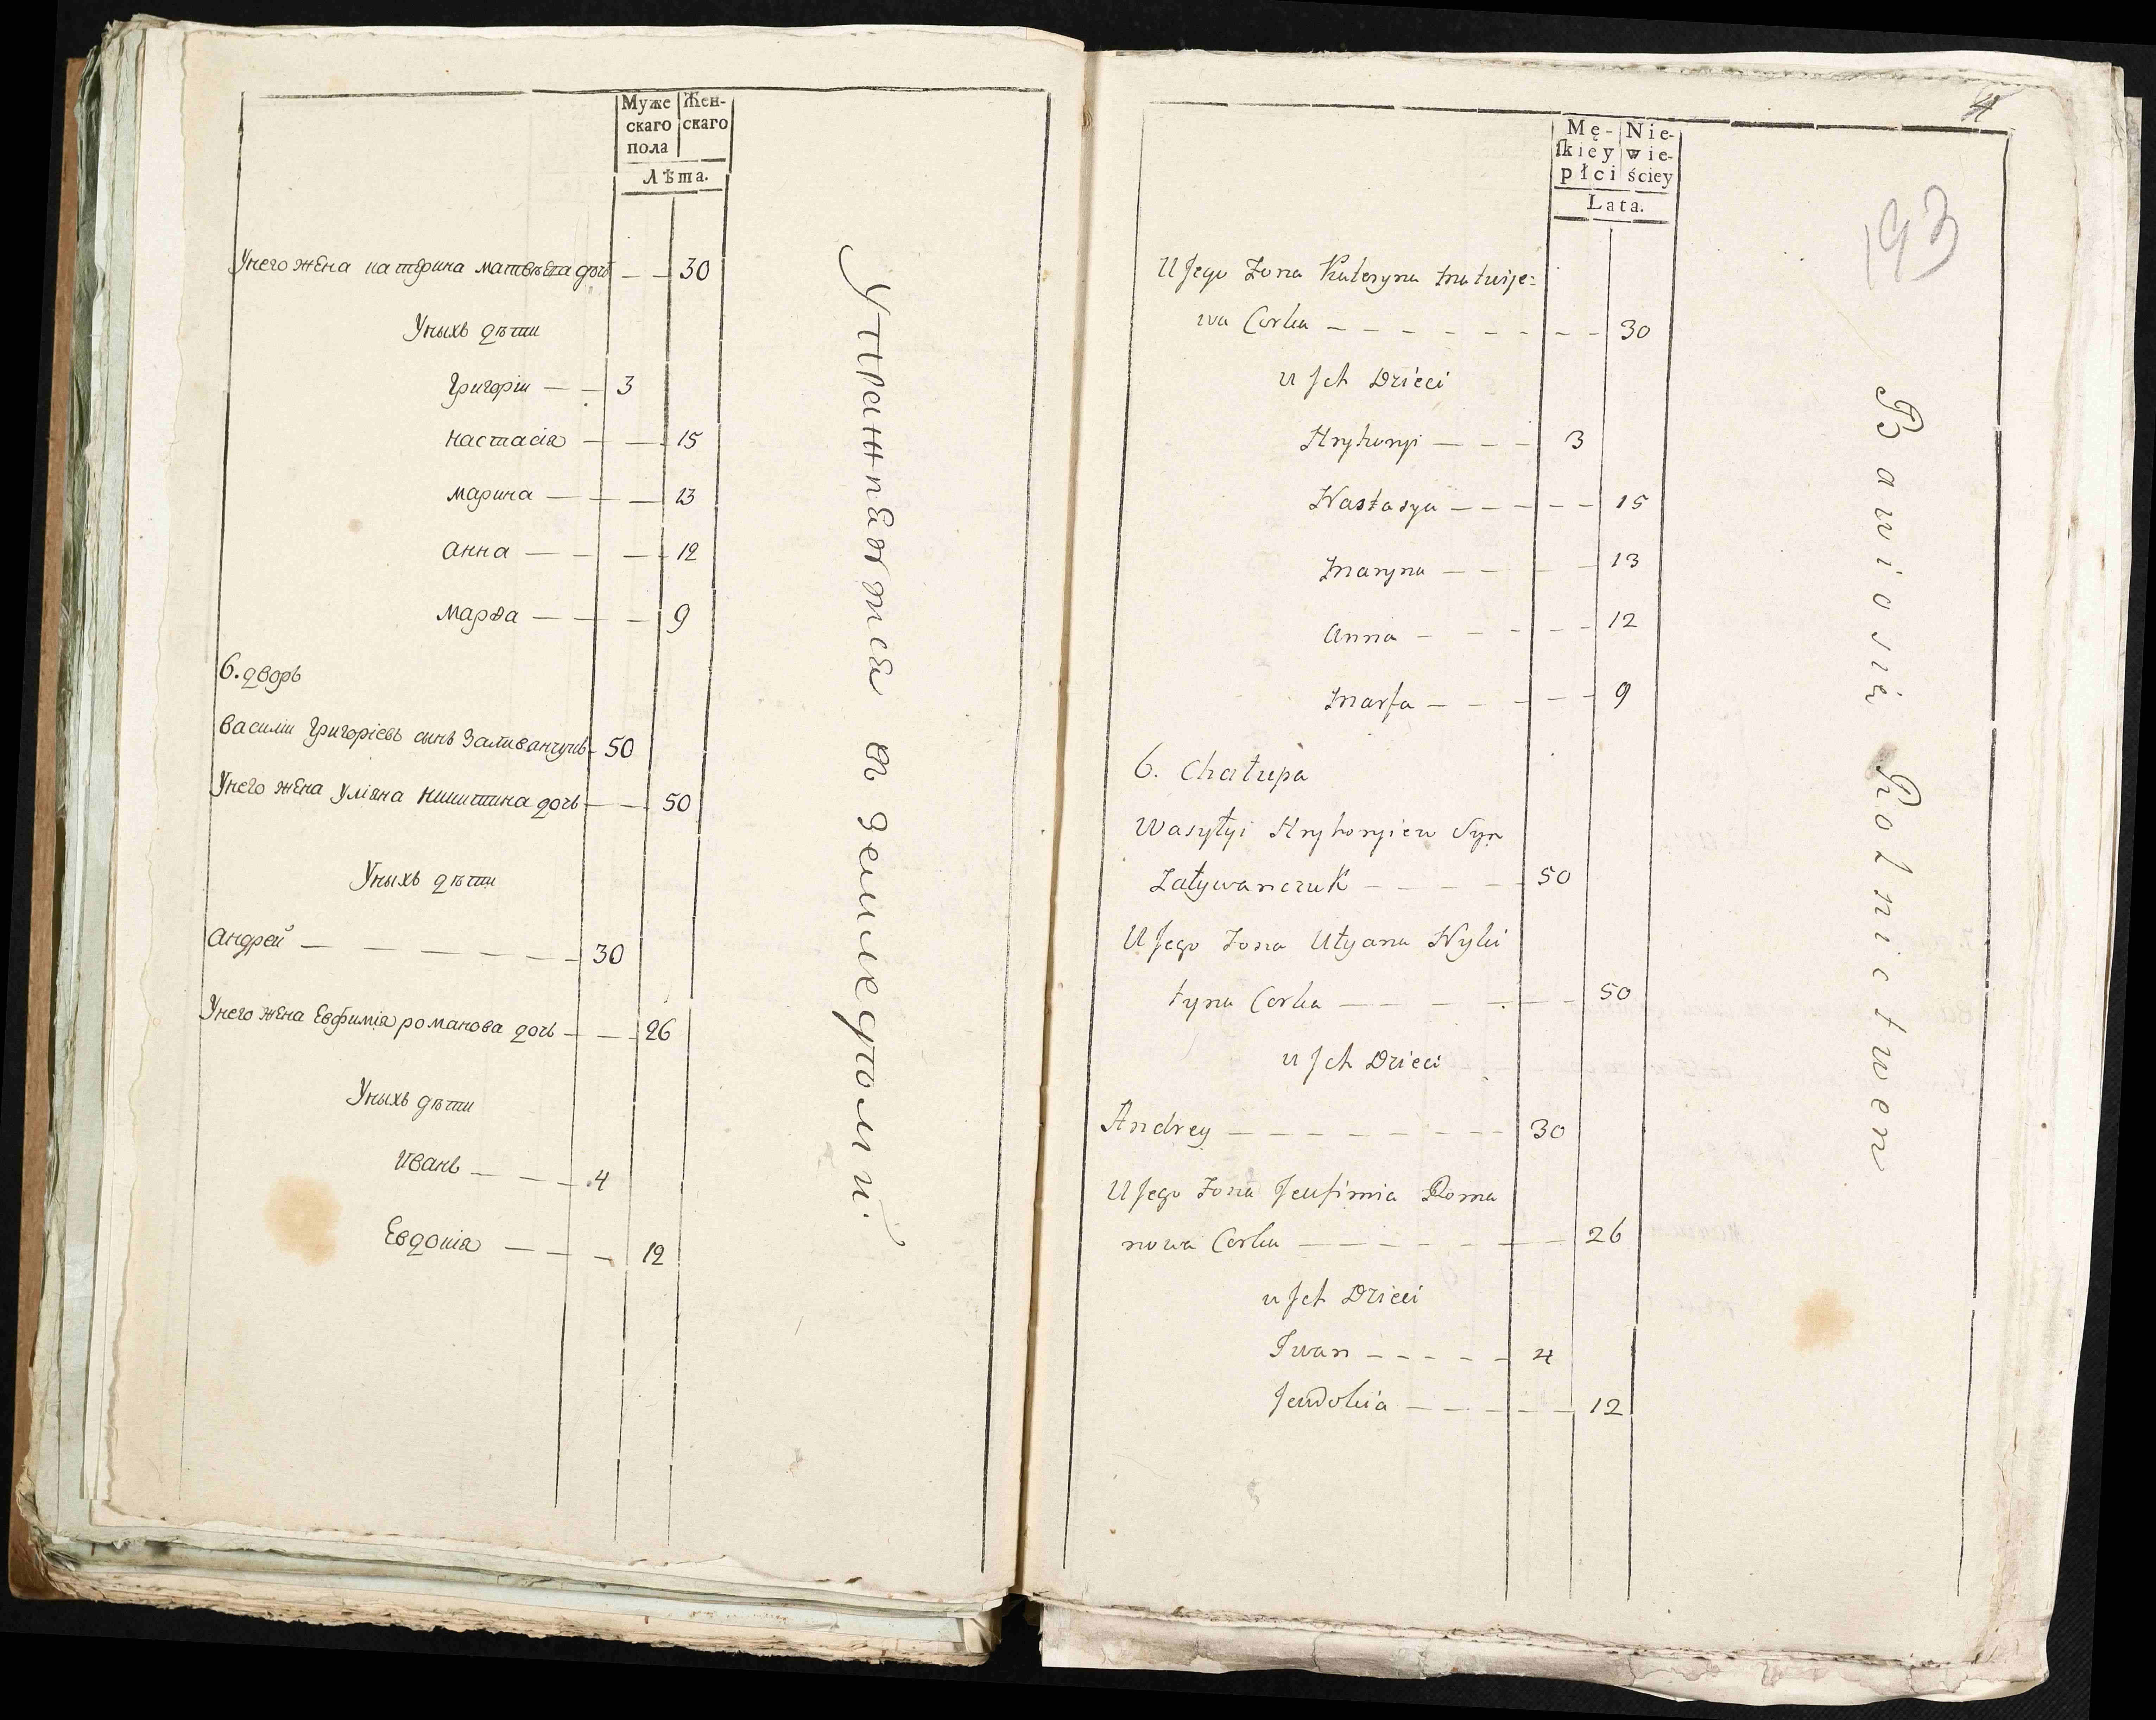 Муже
скаго
пола
Жен-
скаго
Лѣта.
Унего жена катерина матвѣева дочь — — 30
Уныхъ дѣти
Григорiи — — 3
настасiя — — 15
марина — — — 13
анна — — — 12
марѳа — — — 9
6. дворъ
василiи Григорiевъ сынъ Заливанчукъ — 50
Унего жена улiяна никитина дочь — — 50
Уныхъ дѣти
андрей — — — — — — 30
Унего жена Евфимiя романова дочь — — 26
Уныхъ дѣти
иванъ — — — 4
Евдокiя — — — 12
Упражняются въ земледѣлiи.
Mę-
skiey
płci
Nie-
wie-
ściey
Lata.
4
193
U Jego Zona Kateryna Matwije=
wa Corka — — — — — — — — 30
u Jch Dzieci
Hryhoryi — — — 3
Nastasya — — — — — 15
Maryna — — — — 13
Anna — — — — — 12
Marfa — — — — — 9
6. Chałupa
Wasyłyi Hryhoryiew Syn
Załywanczuk — — — — 50
U Jego Zona Ułyana Nyki
tyna Corka — — — — — — 50
u Jch Dzieci
Andrey — — — — — — — — 30
U Jego Zona Jeufimia Roma
nowa Corka — — — — — — — 26
u Jch Dzieci
Iwan — — — — — 4
Jeudokia — — — — — 12
Bawiosię Rolnictwen